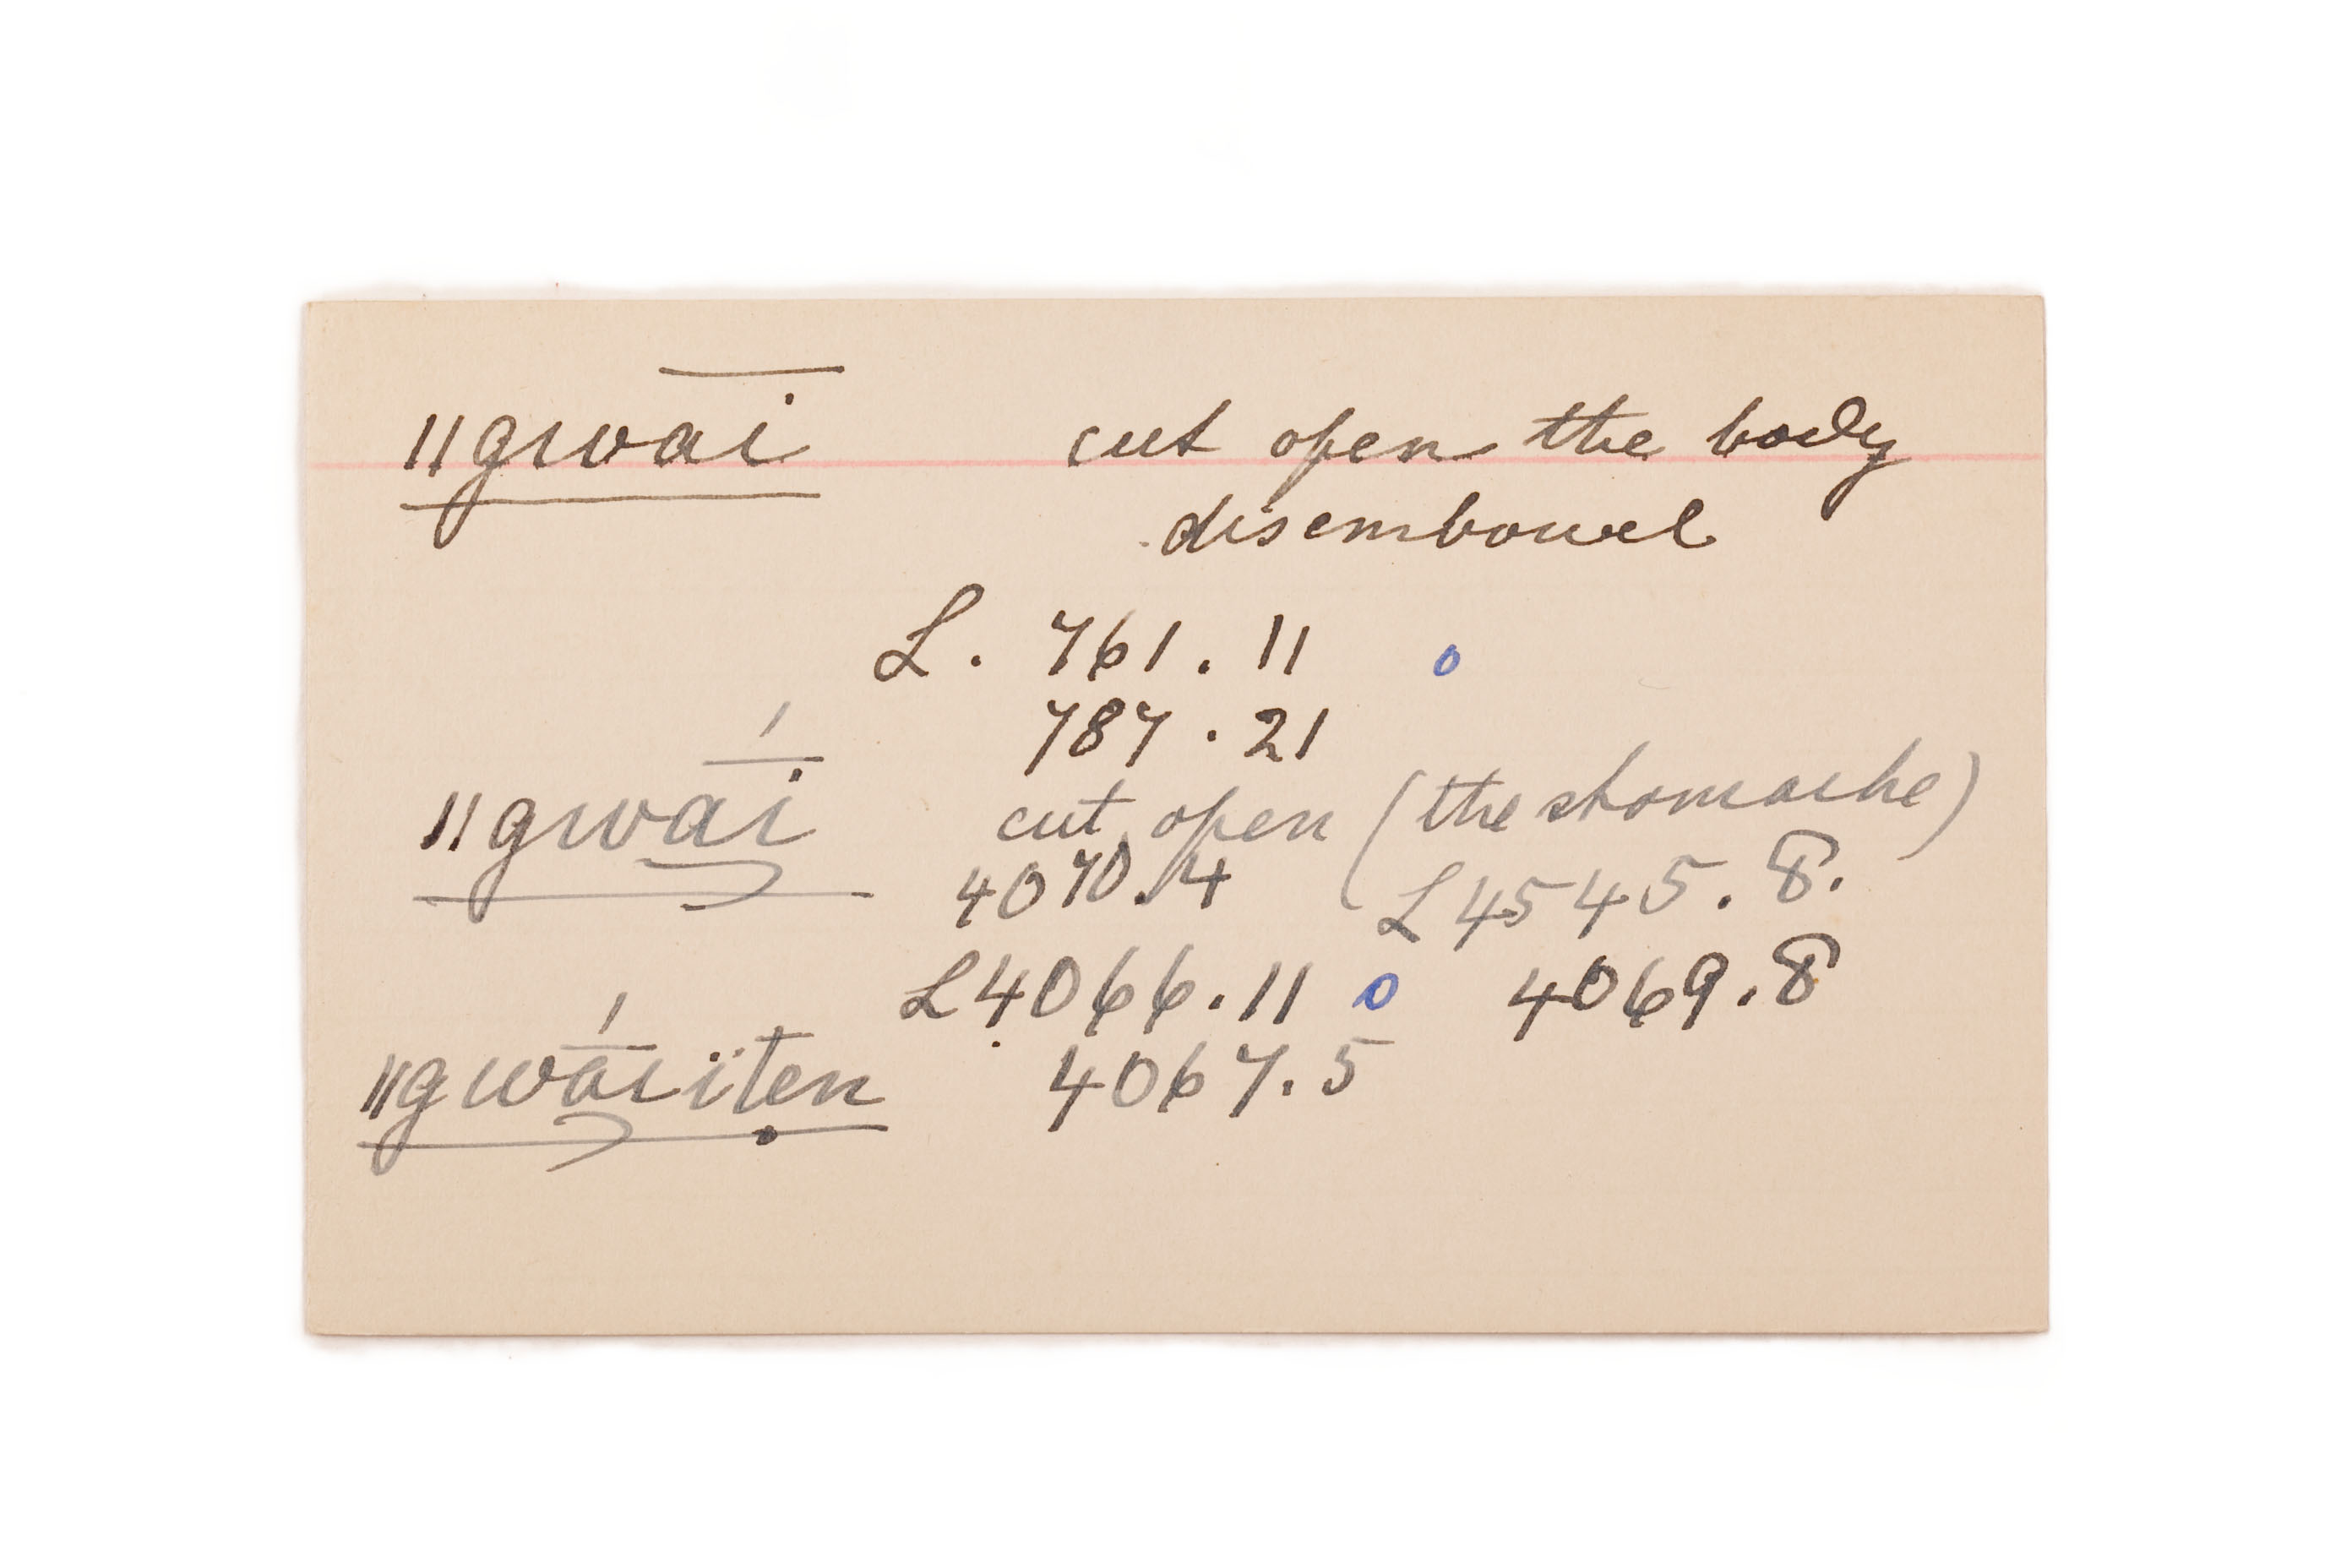 ǁgwai̅ cut open the body
disembowel
L. 761.11 o
787.21
ǁgwā́i cut open (the stomache)
4070.4 L 4545.8.
L 4066.11 o 4069.8
ǁgwā́iïten 4067.5